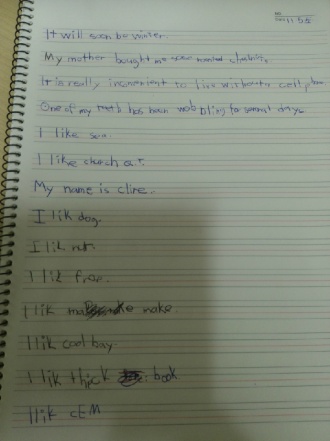 11 5 5
It will soon be winter.
My mother bought me some clothing.
It is really inconvenient to live without a cell phone
One of my teeth has been wobbling for several days
I like sea.
I like
My name is clire.
I lik dog.
I lik
I lik free.
I lik make.
I lik cool bay
I lik thick book
I lik